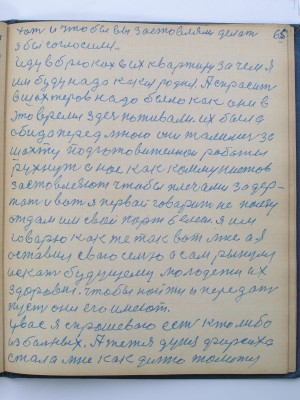 65
тот и чтобы вы заставляли делат
я бы согласилис.
Иду в брюках в их квартиру зачем я
им буду надо какая родня. А спросит
в шахтеров надо было как они в
это время здес поживали. их была
обида передо мною они толкнут
шахту подготовительной работы
рухнут с нее как коммунистов
заставляют чтобы плечами задер-
жат и вот я первай говорит не пойду
отдам им свой порт белет я им
говорю как же так вот мне а я
оставил свою семю а сам рыщу
искат будущему молодежи их
здоровя. чтобы найти и передат
пуст они его имеют.
У вас я спрошеваю ест кто либо
из болных. А тетя дуся
стала мне как